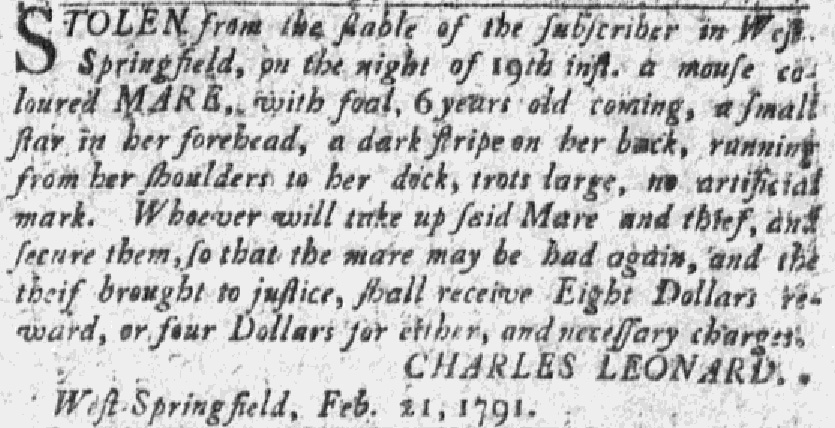 STOLEN from the ſtable of the ſubſcriber in Weſt-
Springfield, on the night of 19th inſt. a mouſe co-
loured MARE, with foal, 6 years old coming, a ſmall
ſtar in her forehead, a dark ſtripe on her back, running
from her ſhoulders to her dock, trots large, no artificial
mark. Whoever will take up ſaid Mare and thief, and
ſecure them, ſo that the mare may be had again, and the
theif brought to juſtice, ſhall receive Eight Dollars re-
ward, or four Dollars for either, and neceſſary charges.
CHARLES LEONARD.
Weſt-Springfield, Feb. 21, 1791.